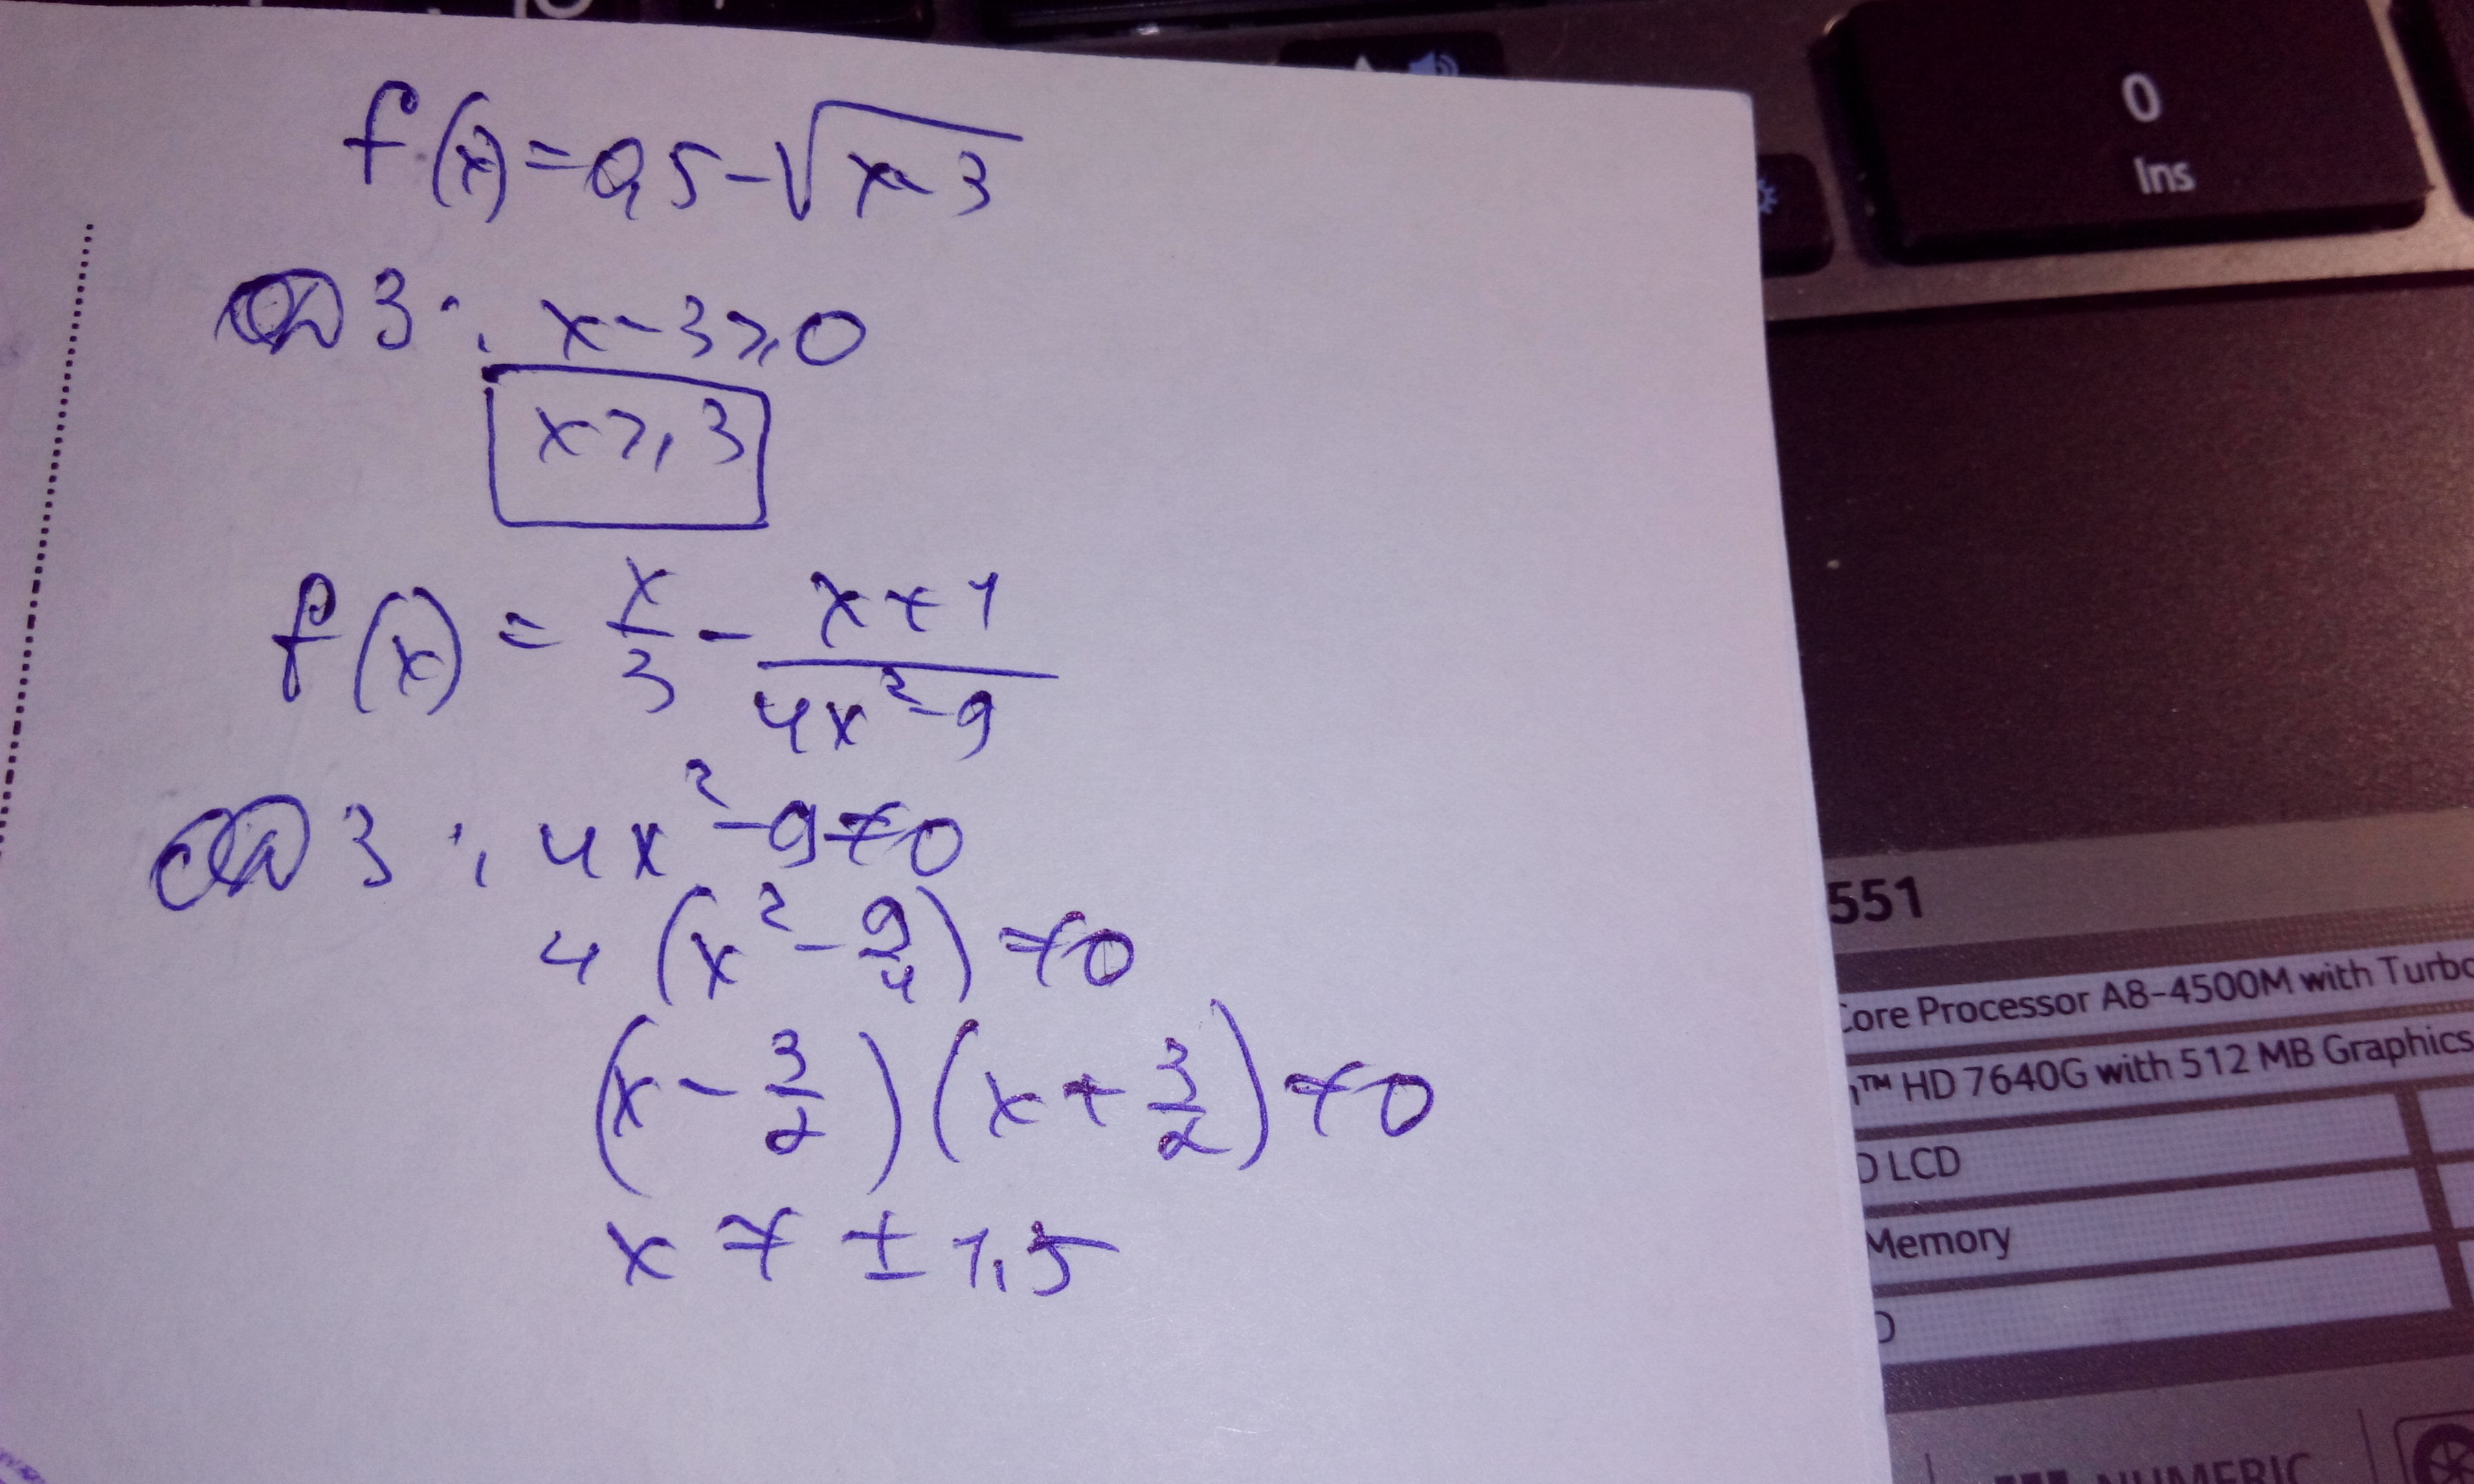 f(x) = 0,5 - √(x-3)
ОДЗ: x-3 ≥ 0
x ≥ 3
f(x) = x/3 - (x+1)/(4x²-9)
ОДЗ: 4x²-9 ≠ 0
4(x² - 9/4) ≠ 0
(x - 3/2)(x + 3/2) ≠ 0
x ≠ ± 1,5
0
Ins
551
Core Processor A8-4500M with Turbo
™ HD 7640G with 512 MB Graphics
LCD
Memory
NUMERIC